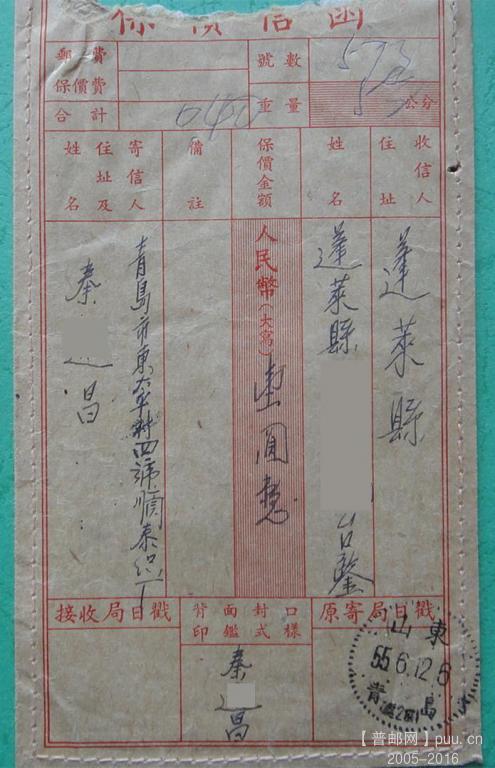 保價信函
郵費
號數
573
保價費
重量
公分
合計
040
收信人
住址
姓名
保價金額
備註
寄信人
住址及
姓名
蓬萊縣
蓬萊縣
台鑒
人民幣(大寫)
圓
青島市東
四號順泰
秦
昌
原寄局日戳
背面封口
印鑑式樣
接收局日戳
秦
昌
山東
55.6.12.6
青島
【普邮网】puu.cn
2005-2016